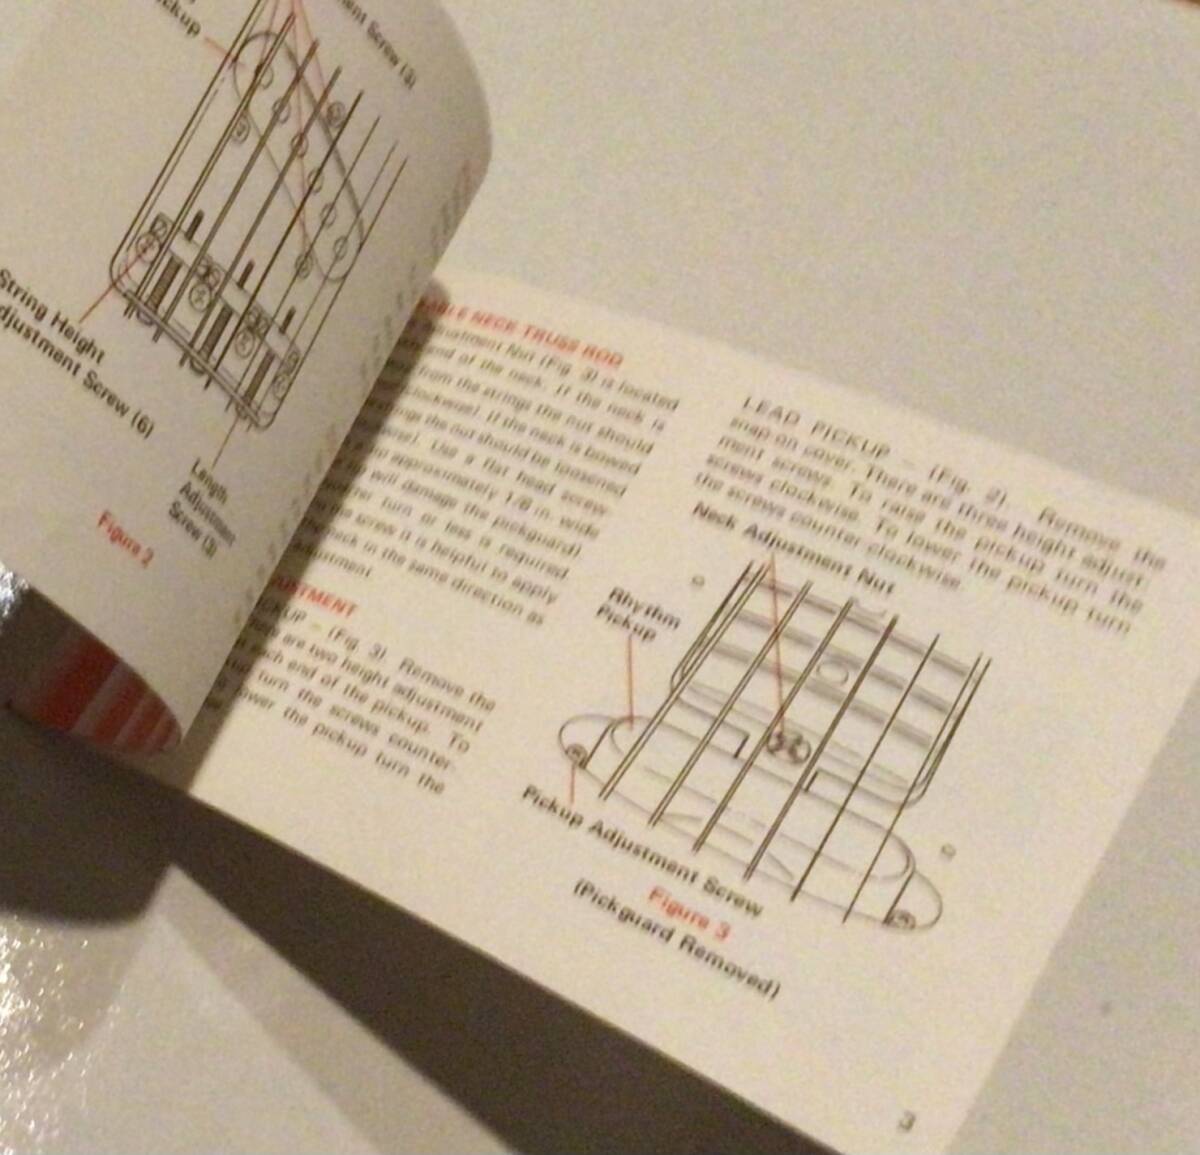 ickup
ment Screw (3)
String Height
djustment Screw (6)
Length
Adjustment
Screw (3)
Figure 2
BLE NECK TRUSS ROD
ustment Nut (Fig. 3) is located
end of the neck. If the neck is
from the strings the nut should
lockwise). If the neck is bowed
ngs the nut should be loosened
Use a flat head screw-
approximately 1/8 in. wide
will damage the pickguard)
turn or less is required.
the screw it is helpful to apply
neck in the same direction as
ustment
USTMENT
CKUP – (Fig. 3). Remove the
are two height adjustment
each end of the pickup. To
turn the screws counter-
ower the pickup turn the
LEAD PICKUP – (Fig. 2). Remove the
snap on cover. There are three height adjust-
ment screws. To raise the pickup turn the
screws clockwise. To lower the pickup turn
the screws counter-clockwise.
Neck Adjustment Nut
Rhythm
Pickup
Pickup Adjustment Screw
Figure 3
(Pickguard Removed)
3